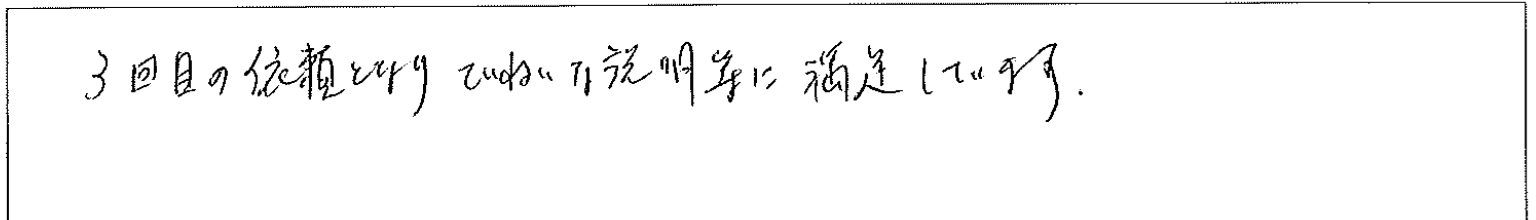 3回目の依頼となり ていねいな説明等に満足しています.